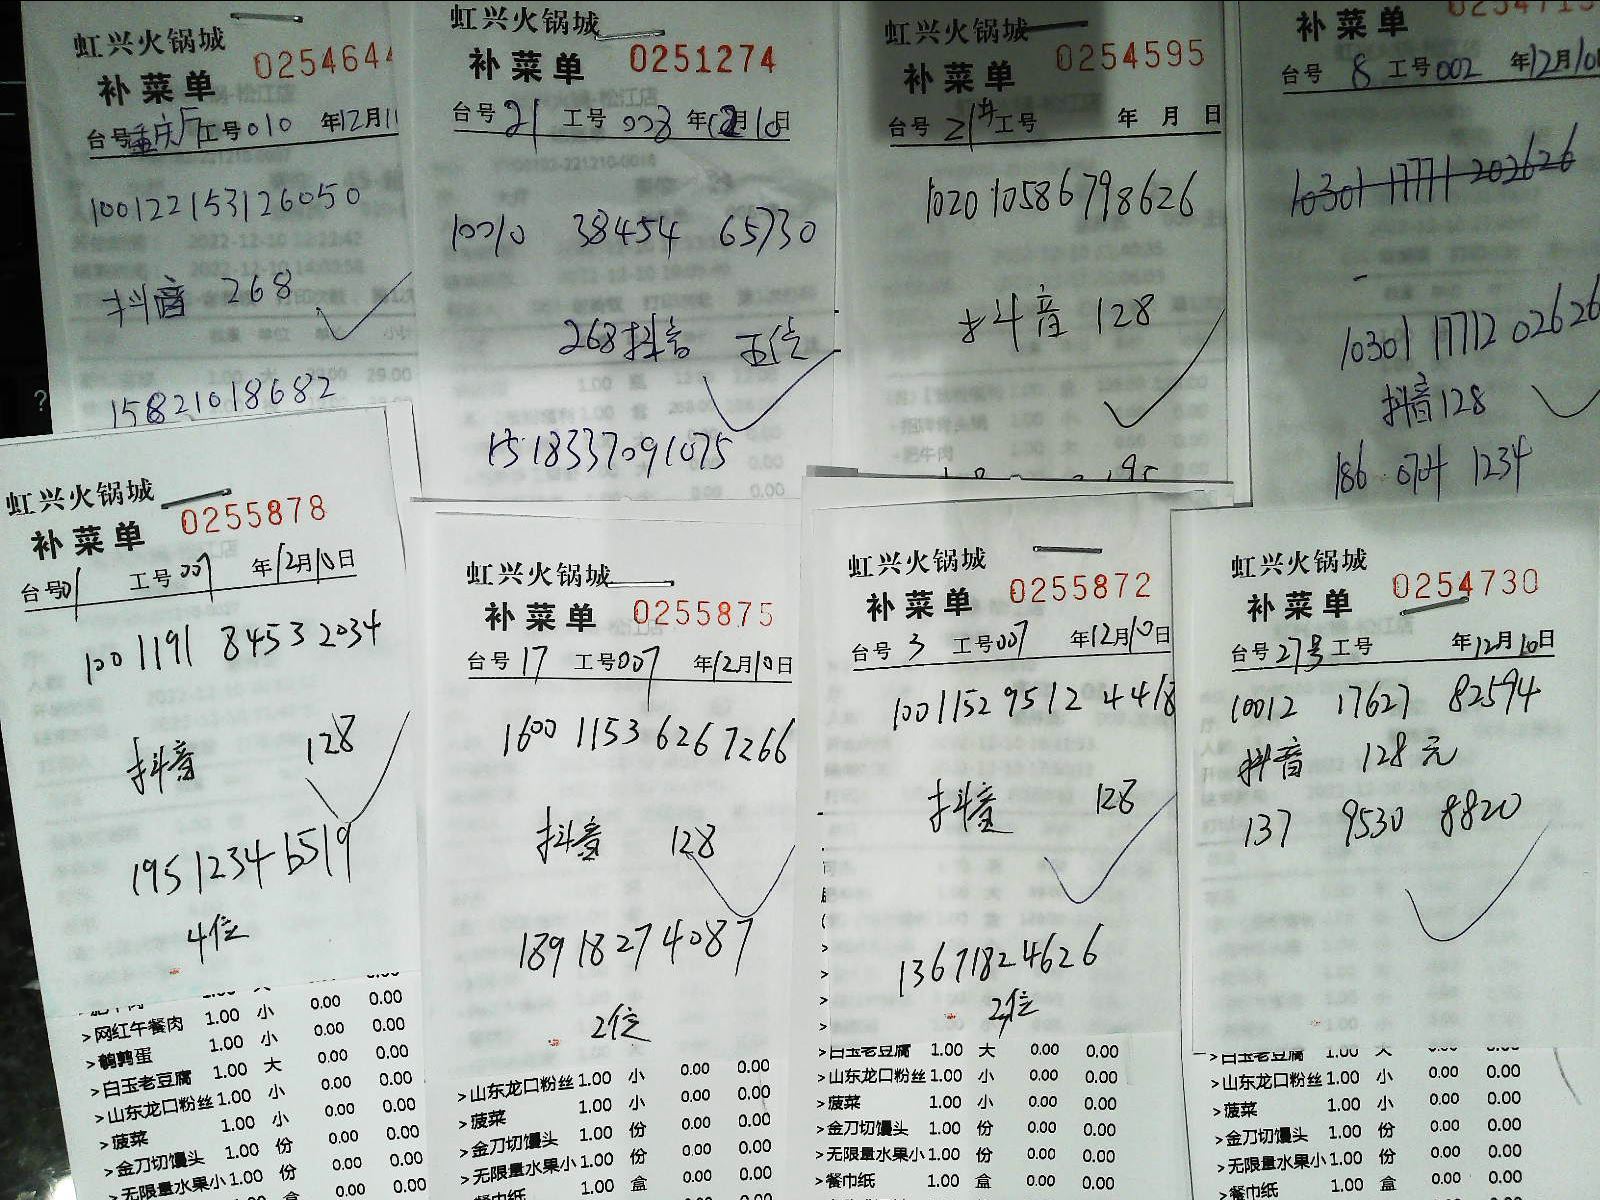 虹兴火锅城
补菜单 025464
台号重庆厅工号010 年12月11
100122153126050
抖音 268
15821018682
虹兴火锅城
补菜单 0251274
台号21 工号008 年12月10日
10010 38454 65730
268抖音 五位
1518337091075
虹兴火锅城
补菜单 0254595
台号21# 工号 年 月 日
1020 10586798626
抖音 128
补菜单
台号 8 工号002 年12月10
10301 17771 202626
10301 17712 02626
抖音128
186 0704 1234
虹兴火锅城
补菜单 0255878
台号01 工号007 年12月10日
1001191 84532034
抖音 128
19512346519
4位
>网红午餐肉 1.00 小 0.00 0.00
>鹌鹑蛋 1.00 小 0.00 0.00
>白玉老豆腐 1.00 大 0.00 0.00
>山东龙口粉丝 1.00 小 0.00 0.00
>菠菜 1.00 小 0.00 0.00
>金刀切馒头 1.00 份 0.00 0.00
>无限量水果小 1.00 份 0.00 0.00
盒 0.00 0.00
虹兴火锅城
补菜单 0255875
台号17 工号007 年12月10日
1600 1153 6267266
抖音 128
18918274087
2位
>山东龙口粉丝 1.00 小 0.00 0.00
>菠菜 1.00 小 0.00 0.00
>金刀切馒头 1.00 份 0.00 0.00
>无限量水果小 1.00 份 0.00 0.00
餐巾纸 1.00 盒 0.00 0.00
虹兴火锅城
补菜单 0255872
台号 3 工号007 年12月10日
1001152 9512 4418
抖音 128
13671824626
2位
>白玉老豆腐 1.00 大 0.00 0.00
>山东龙口粉丝 1.00 小 0.00 0.00
>菠菜 1.00 小 0.00 0.00
>金刀切馒头 1.00 份 0.00 0.00
>无限量水果小 1.00 份 0.00 0.00
>餐巾纸 1.00 盒 0.00 0.00
虹兴火锅城
补菜单 0254730
台号27号 工号 年12月10日
10012 17627 82594
抖音 128元
137 9530 8820
>白玉老豆腐 1.00 大 0.00 0.00
>山东龙口粉丝 1.00 小 0.00 0.00
>菠菜 1.00 小 0.00 0.00
>金刀切馒头 1.00 份 0.00 0.00
>无限量水果小 1.00 份 0.00 0.00
>餐巾纸 1.00 盒 0.00 0.00